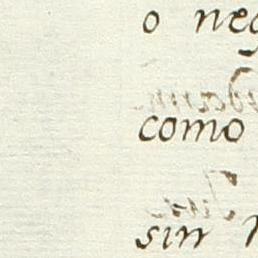 o neg
como
sin